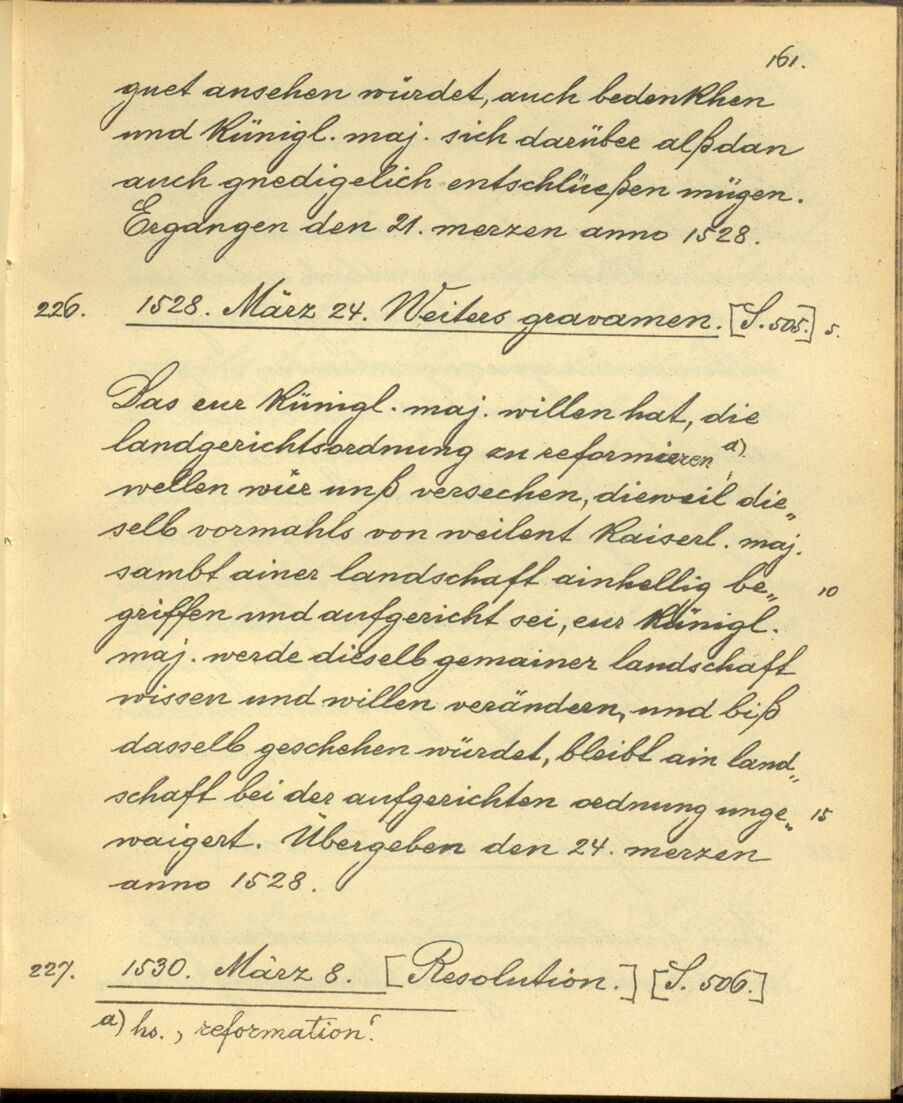 161.
guet ansehen würdet, auch bedenkhen
und künigl. maj. sich darüber alßdan
auch gnedigelich entschlüeßen mügen.
Ergangen den 21. merzen anno 1528.
226. 1528. März 24. Weiters gravamen. [S. 505.] 5.
Das eur künigl. maj. willen hat, die
landgerichtsordnung zu reformieren a)
wellen wüer unß versechen, dieweil die„
selb vormahls von weilent kaiserl. maj.
sambt ainer landschaft ainhellig be„ 10
griffen und aufgericht sei, eur künigl.
maj. werde dieselb gemainer landschaft
wissen und willen verändern, und biß
dasselb geschehen würdet, bleibt ain land„
schaft bei der aufgerichten ordnung unge„ 15
waigert. Übergeben den 24. merzen
anno 1528.
227. 1530. März 8. [Resolution.] [S. 506.]
a) hs. ‚reformation‘.